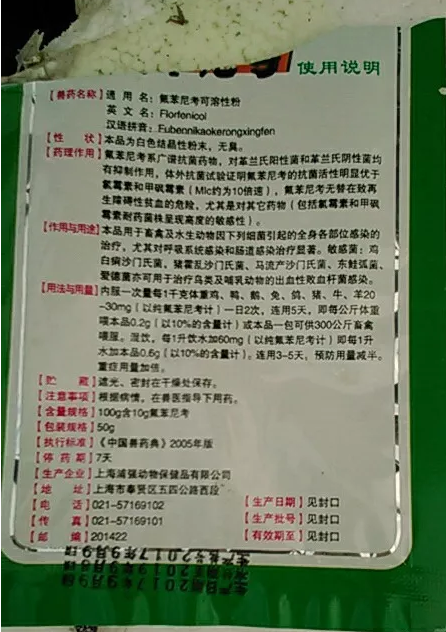 使用说明
【兽药名称】通 用 名：氟苯尼考可溶性粉
英 文 名：Florfenicol
汉语拼音：Fubennikaokerongxingfen
【性 状】本品为白色结晶性粉末，无臭。
【药理作用】氟苯尼考系广谱抗菌药物，对革兰氏阳性菌和革兰氏阴性菌均
有抑制作用，体外抗菌试验证明氟苯尼考的抗菌活性明显优于
氯霉素和甲砜霉素（Mic约为10倍速），氟苯尼考无替在致再
生障碍性贫血的危险，尤其是对其它药物（包括氯霉素和甲砜
霉素耐药菌株呈现高度的敏感性）。
【作用与用途】本品用于畜禽及水生动物因下列细菌引起的全身各部位感染的
治疗，尤其对呼吸系统感染和肠道感染治疗显著。敏感菌：鸡
白痢沙门氏菌、猪霍乱沙门氏菌、马流产沙门氏菌、东蛙弧菌、
爱德菌亦可用于治疗鸟类及哺乳动物的出血性败血杆菌感染。
【用法与用量】内服一次量每1千克体重鸡、鸭、鹅、兔、鸽、猪、牛、羊20
-30mg（以纯氟苯尼考计）一日2次，连用5天，即每公斤体重
喂本品0.2g（以10%的含量计）或本品一包可供300公斤畜禽
喂服。混饮，每1升饮水加60mg（以纯氟苯尼考计）即每1升
水加本品0.6g（以10%含量计）。连用3-5天，预防用量减半。
重症用量加倍。
【贮 藏】遮光、密封在干燥处保存。
【注意事项】根据病情，在兽医指导下用药。
【含量规格】100g含10g氟苯尼考
【包装规格】50g
【执行标准】《中国兽药典》2005年版
【停 药 期】7天
【生产企业】上海浦强动物保健品有限公司
【地 址】上海市奉贤区五四公路西段
【电 话】021-57169102 【生产日期】见封口
【传 真】021-57169101 【生产批号】见封口
【邮 编】201422 【有效期至】见封口